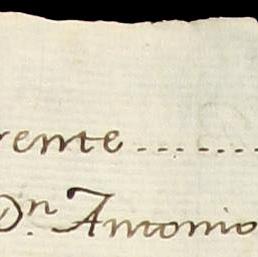 rente........
Dn. Antonio